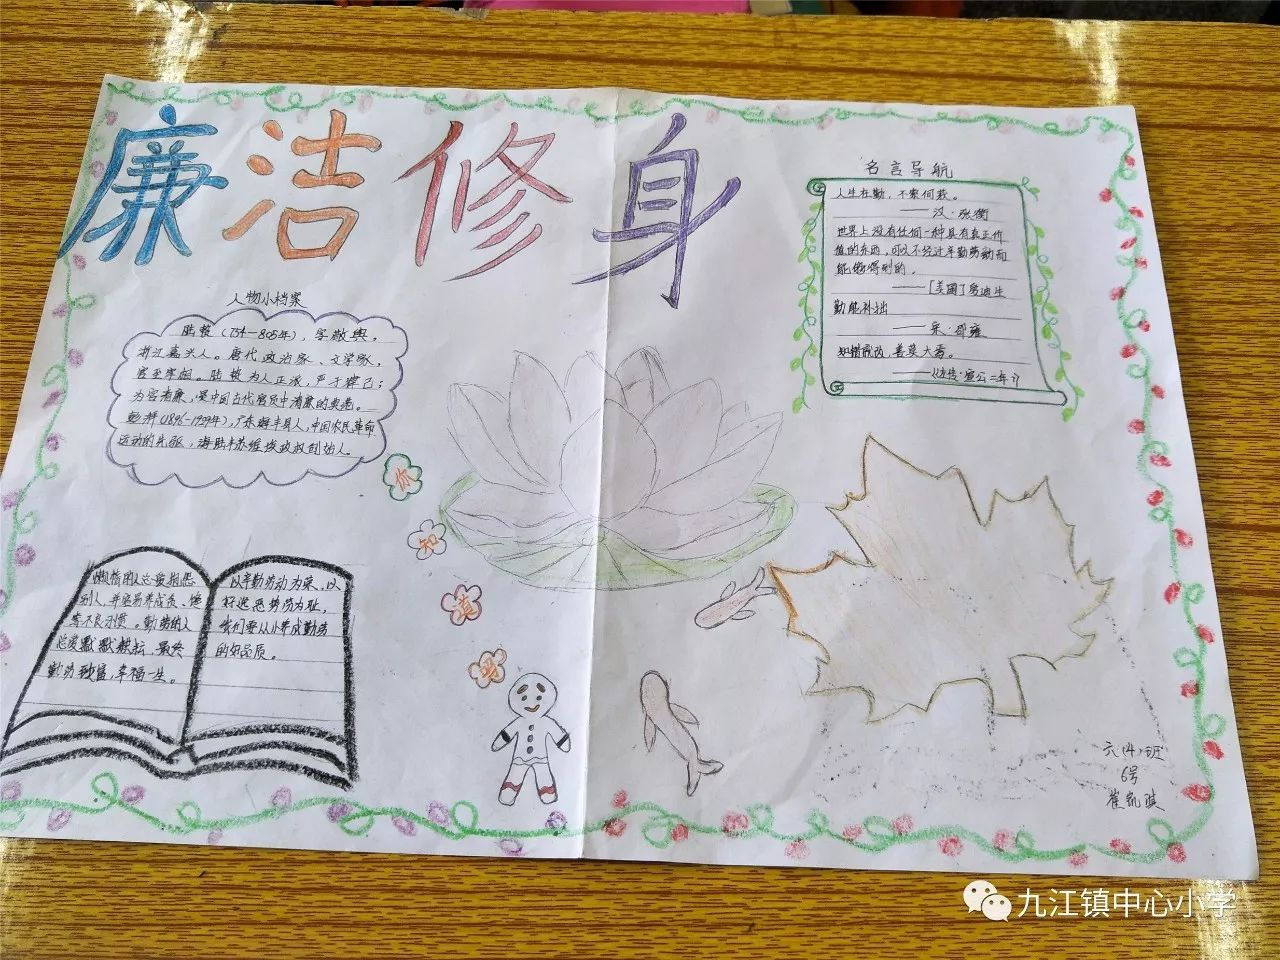 廉洁修身
人物小档案
陆贽(754-805年),字敬舆。
浙江嘉兴人。唐代政治家、文学家,
官至宰相。陆贽为人正派,严于律己;
为官清廉,是中国古代官员中清廉的典范。
彭湃(1896-1929年),广东海丰县人,中国农民革命
运动的先驱,海陆丰苏维埃政权创始人。
名言导航
人生在勤,不索何获。
——汉·张衡
世界上没有任何一种具有真正价
值的东西,可以不经过辛勤劳动而
能够得到的。
——[美国]爱迪生
勤能补拙
——宋·邵雍
知错能改,善莫大焉。
——《左传·宣公二年》
你
知
真
吗
懒惰的人
别人,并容易养成贪、
等不良习惯。勤劳的人
总是默默耕耘,最终
勤劳致富,幸福一生。
以辛勤劳动为荣,以
好逸恶劳为耻,
我们要从小养成勤劳
的好品质。
六(4)班
6号
崔凯琪
九江镇中心小学